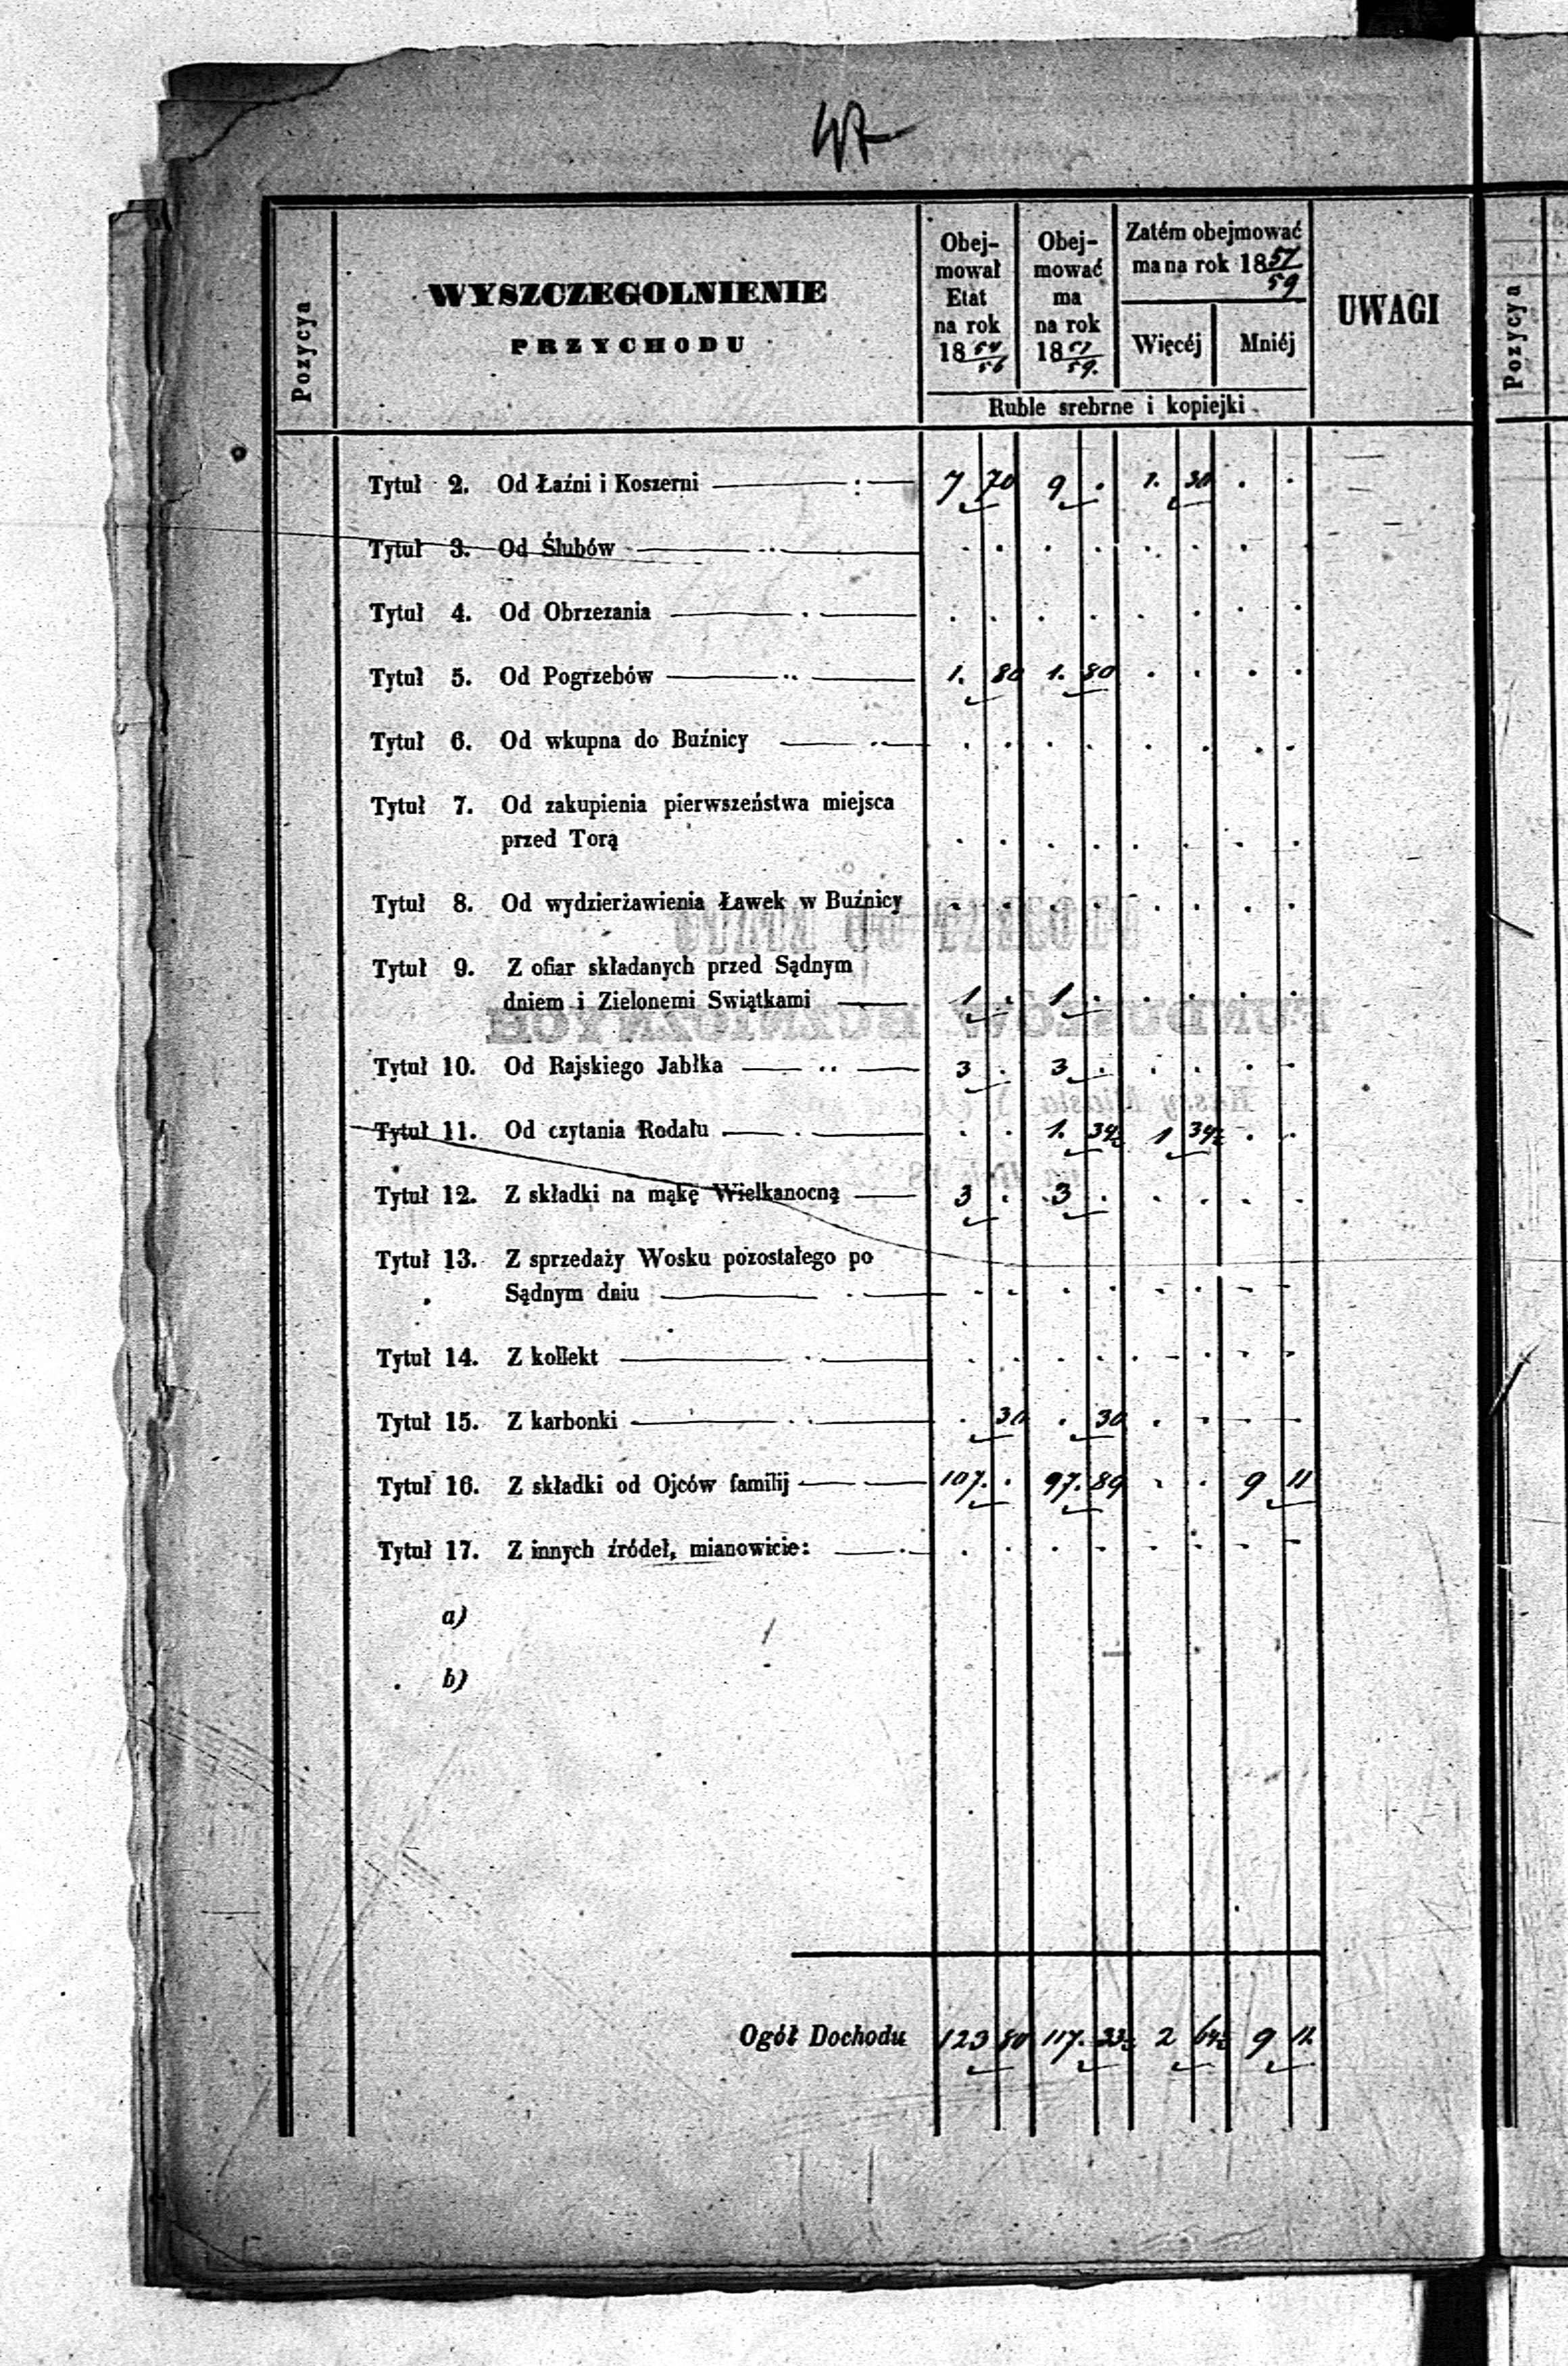 47
Pozycya
WYSZCZEGOLNIENIE
PRZYCHODU
Obej-
mował
Etat
na rok
18 54/56
Obej-
mować
ma
na rok
18 57/59.
Zatém obejmować
ma na rok 18 57/59
Więcéj
Mniéj
Ruble srebrne i kopiejki
UWAGI
Pozycya
Tytuł 2. Od Łaźni i Koszerni 7 70 9 . 1. 30 . .
Tytuł 3. Od Ślubów . . . . . . . .
Tytuł 4. Od Obrzezania . . . . . . . .
Tytuł 5. Od Pogrzebów 1. 80 1. 80 . . . .
Tytuł 6. Od wkupna do Buźnicy . . . . . . . .
Tytuł 7. Od zakupienia pierwszeństwa miejsca
przed Torą . . . . . . . .
Tytuł 8. Od wydzierżawienia Ławek w Buźnicy . . . . . . . .
Tytuł 9. Z ofiar składanych przed Sądnym
dniem i Zielonemi Swiątkami 1 . 1 . . . . .
Tytuł 10. Od Rajskiego Jabłka 3 . 3 . . . . .
Tytuł 11. Od czytania Rodału . . 1. 34½ 1 34½ . .
Tytuł 12. Z składki na mąkę Wielkanocną 3 . 3 . . . . .
Tytuł 13. Z sprzedaży Wosku pozostałego po
Sądnym dniu . . . . . . . .
Tytuł 14. Z kollekt . . . . . . . .
Tytuł 15. Z karbonki . 30 . 30 . . . .
Tytuł 16. Z składki od Ojców familij 107. . 97. 89 . . 9 11
Tytuł 17. Z innych źródeł, mianowicie: . . . . . . . .
a)
b)
Ogół Dochodu 123 80 117. 33½ 2 64½ 9 11